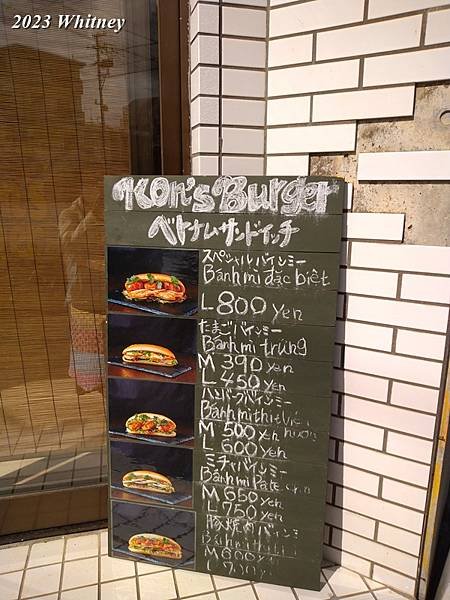 2023 Whitney
Kon's Burger
ベトナムサンドイッチ
スペシャルバインミー
Bánh mì đặc biệt
L 800 yen
たまごバインミー
Bánh mì trứng
M 390 yen
L 450 yen
Bánh mì thịt
M 500 yen
L 600 yen
ミチャバインミー
Bánh mì Pate
M 650 yen
L 750 yen
豚焼肉バインミー
Bánh mì
M 600 yen
L 700 yen